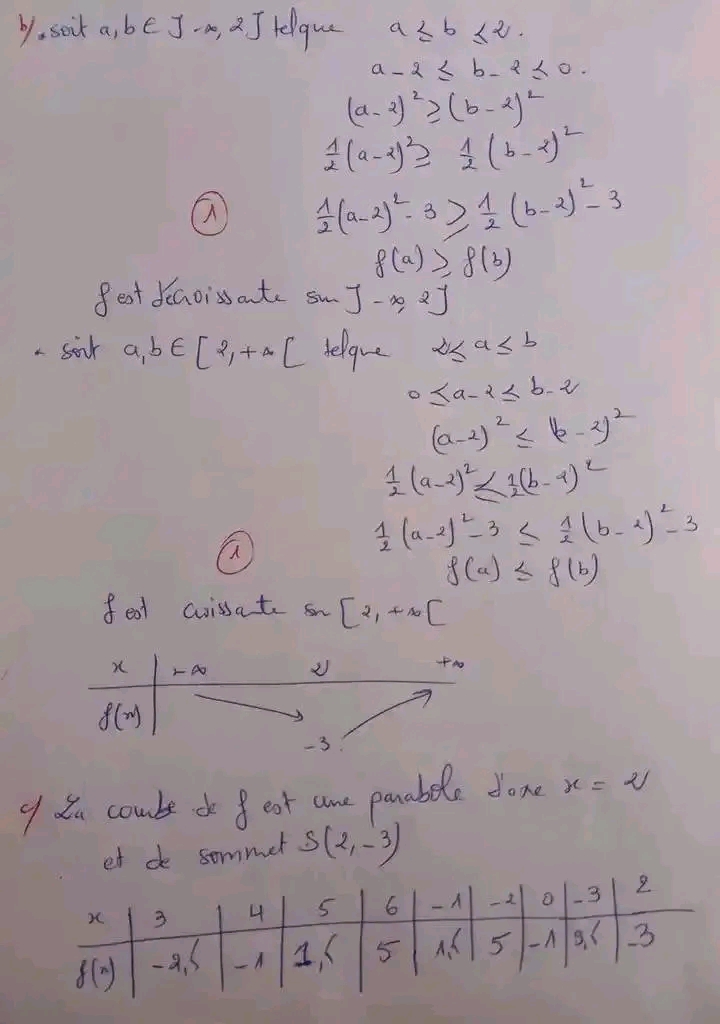 b/ • soit a, b ∈ ]-∞, 2] tel que a ≤ b ≤ 2.
a - 2 ≤ b - 2 ≤ 0.
(a-2)² ≥ (b-2)²
1/2 (a-2)² ≥ 1/2 (b-2)²
1/2 (a-2)² - 3 ≥ 1/2 (b-2)² - 3
①
f(a) ≥ f(b)
f est décroissante sur ]-∞, 2]
• soit a, b ∈ [2, +∞[ tel que 2 ≤ a ≤ b
0 ≤ a - 2 ≤ b - 2
(a-2)² ≤ (b-2)²
1/2 (a-2)² ≤ 1/2 (b-2)²
1/2 (a-2)² - 3 ≤ 1/2 (b-2)² - 3
①
f(a) ≤ f(b)
f est croissante sur [2, +∞[
x | -∞ 2 +∞
f(x) | -3
c/ La courbe de f est une parabole d'axe x = 2
et de sommet S(2, -3)
x | 3 | 4 | 5 | 6 | -1 | -2 | 0 | -3 | 2
f(x) | -2,5 | -1 | 1,5 | 5 | 1,5 | 5 | -1 | 9,5 | -3